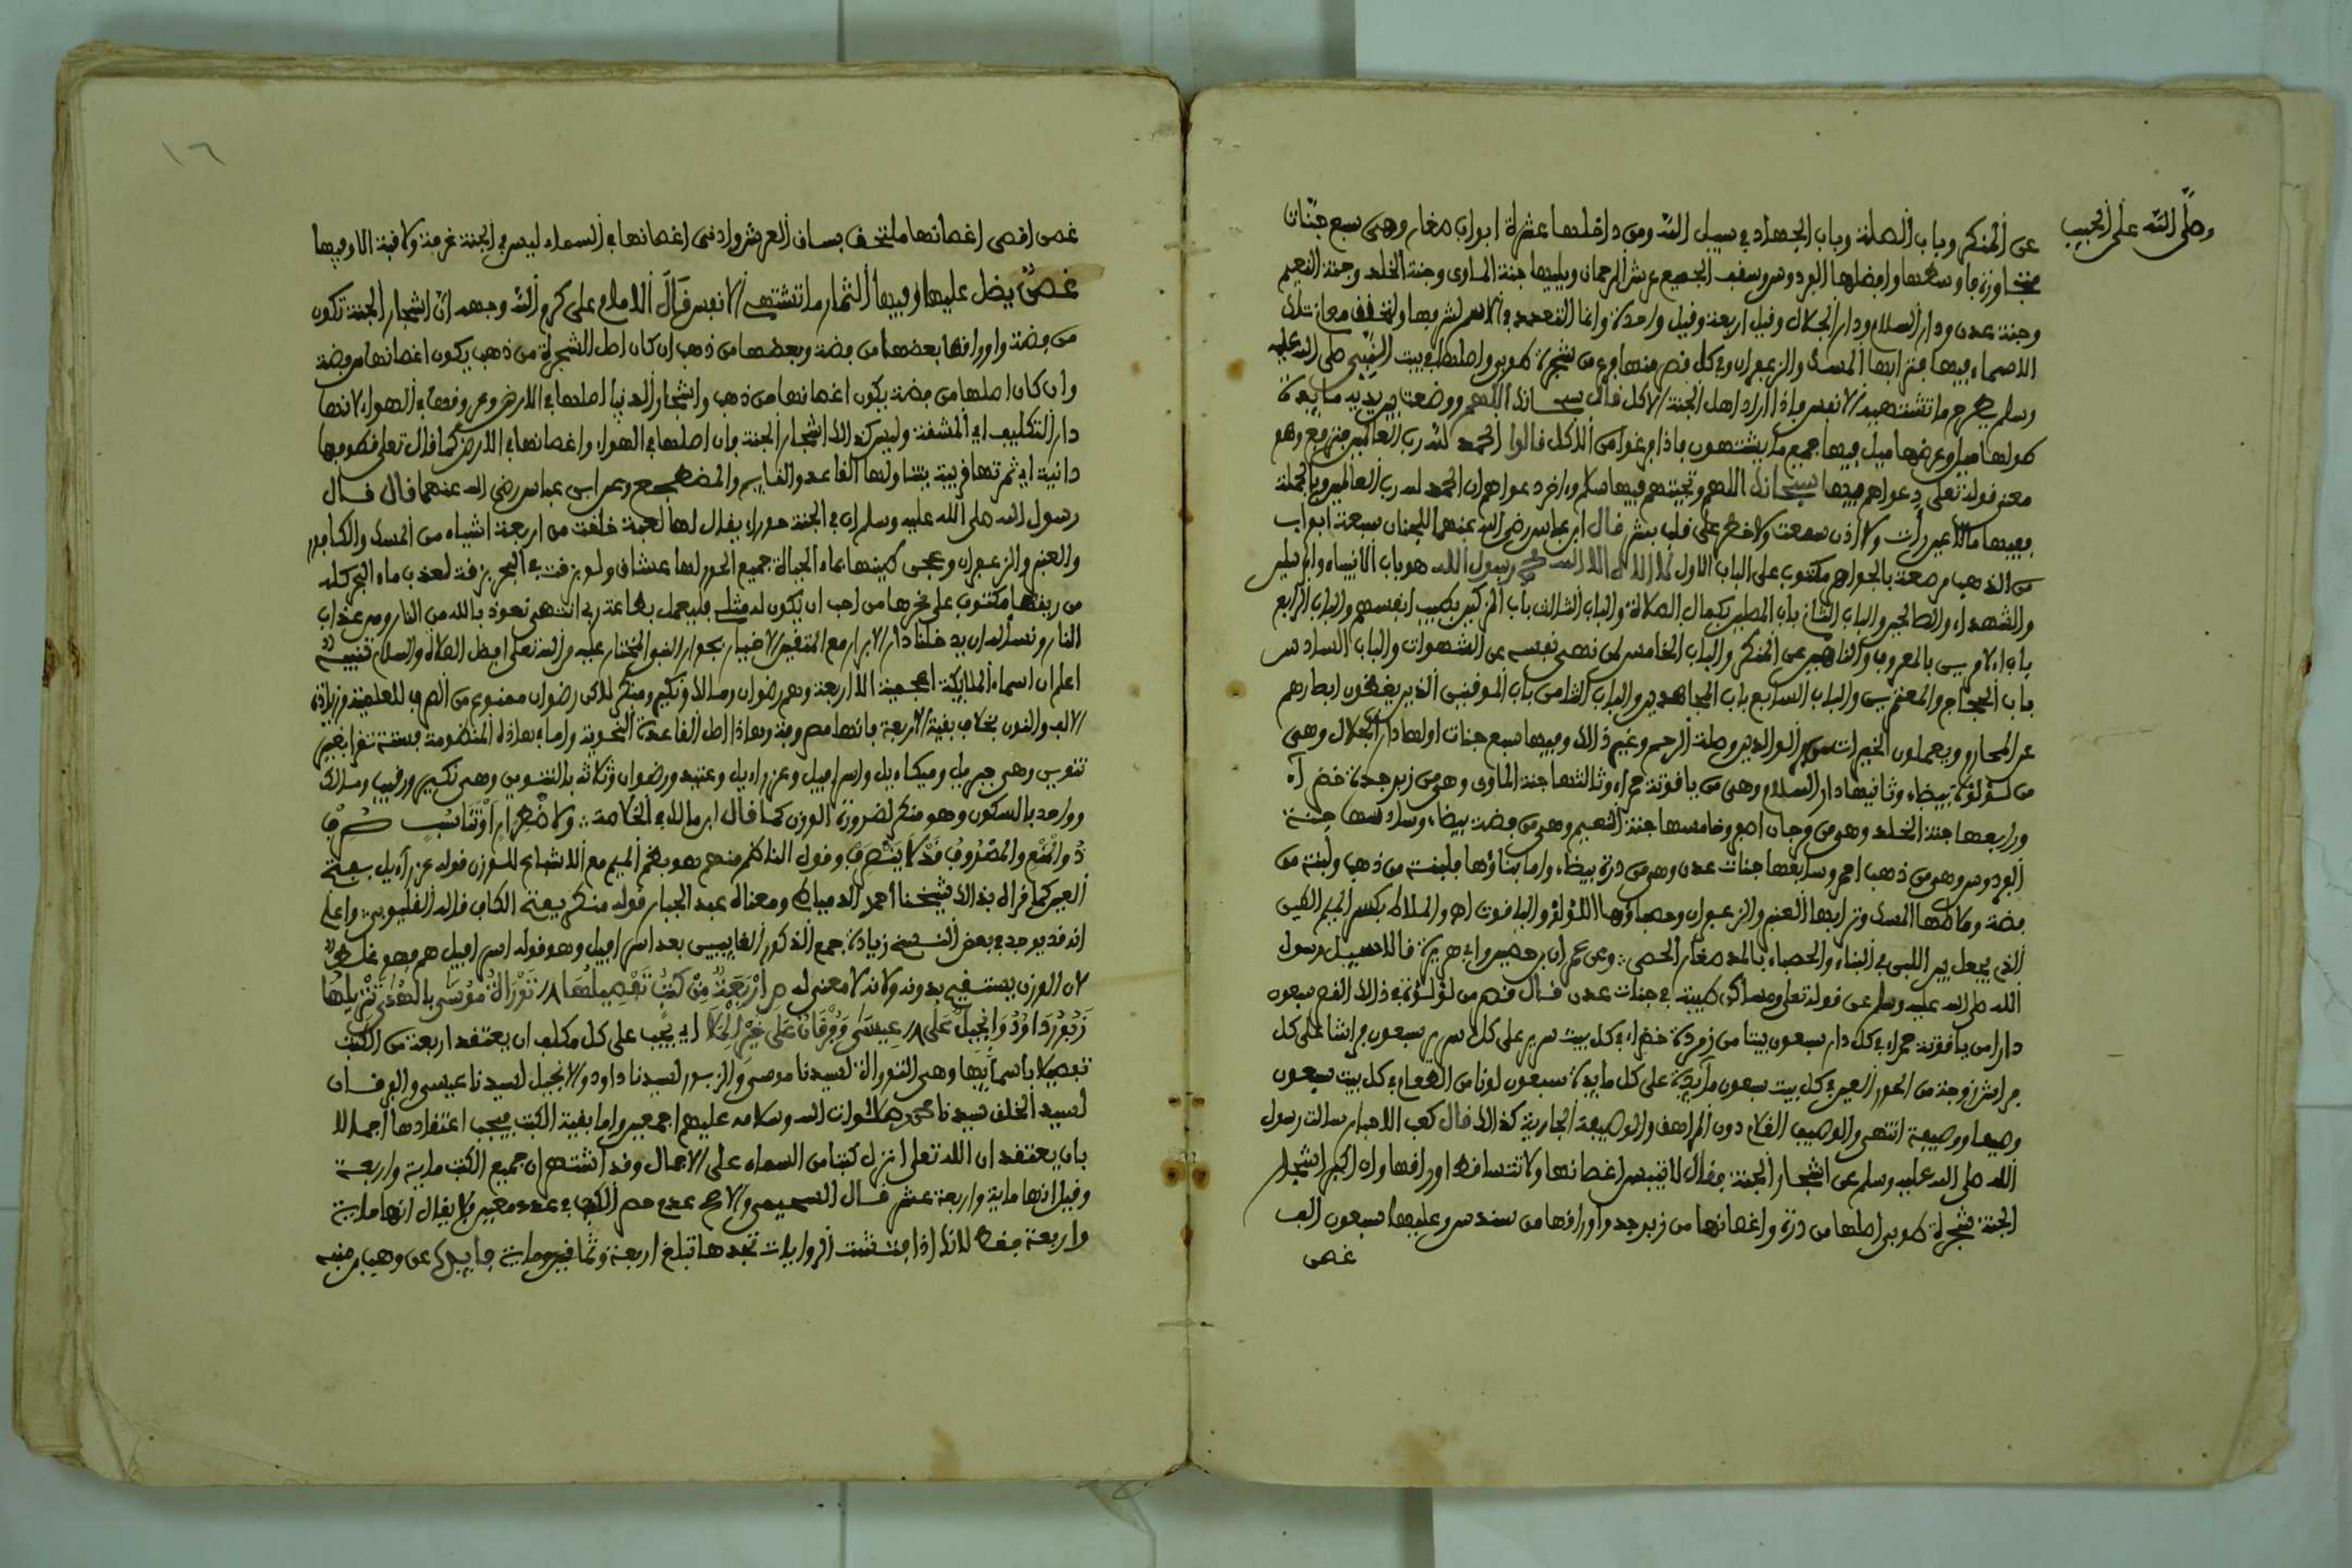 وصلى الله على الحبيب
عن المنكر وباب الصلة وباب الجهاد في سبيل الله ومن داخلها عشرة ابواب صغار وهي سبع جنات
متجاورة واوسطها وافضلها الفردوس وسقف الجميع عرش الرحمان ويليها جنة الماوى وجنة الخلد وجنة النعيم
وجنة عدن ودار السلام ودار الجلال وقيل اربعة وقيل واحدة وانما التعدد في الاسم لشرفها ولتحقق معاني تلك
الاسماء فيها فترابها المسك والزعفران وفي كل قصر منها فرع من شجرة طوبى واصلها في بيت النبي صلى الله عليه
وسلم يطرح ما تشتهيه الانفس فاذا اراد اهل الجنة الاكل قال سبحانك اللهم ووضعت بين يديه مايدة
طولها ميل وعرضها ميل فيها جميع ما يشتهون فاذا فرغوا من الاكل قالوا الحمد لله رب العالمين فترفع وهو
معنى قوله تعلى دعواهم فيها سبحانك اللهم وتحيتهم فيها سلام واخر دعواهم ان الحمد لله رب العالمين وبالجملة
ففيها مالا عين رات ولا اذن سمعت ولا خطر على قلب بشر قال ابن عباس رضي الله عنهما للجنان سبعة ابواب
من الذهب مرصعة بالجواهر مكتوب على الباب الاول لا اله الا الله محمد رسول الله هو باب الانبياء والمرسلين
والشهداء والصالحين والباب الثاني باب المصلين بكمال الصلاة والباب الثالث باب المزكين بطيب انفسهم والباب الرابع
باب الامرين بالمعروف والناهين عن المنكر والباب الخامس لمن نهى نفسه عن الشهوات والباب السادس
باب الحجاج والمعتمرين والباب السابع باب المجاهدين والباب الثامن باب الموقنين الذين يغضون ابصارهم
عن المحارم ويعملون الخيرات من بر الوالدين وصلة الرحم وغير ذلك وفيها سبع جنات اولها دار الجلال وهي
من لؤلؤة بيضاء وثانيها دار السلام وهي من ياقوتة حمراء وثالثها جنة الماوى وهي من زبرجدة خضراء
ورابعها جنة الخلد وهي من مرجان اصفر وخامسها جنة النعيم وهي من فضة بيضاء وسادسها جنة
الفردوس وهي من ذهب احمر وسابعها جنات عدن وهي من درة بيضاء واما بناؤها فلبنة من ذهب ولبنة من
فضة وملاطها المسك وترابها العنبر والزعفران وحصباؤها اللؤلؤ والياقوت اه والملاط بكسر الميم الطين
الذي يجعل بين اللبن في البناء والحصباء بالمد صغار الحصى وعن عمران بن حصين وابي هريرة قالا سيل رسول
الله صلى الله عليه وسلم عن قوله تعلى ومساكن طيبة في جنات عدن قال قصر من لؤلؤة في ذلك القصر سبعون
دارا من ياقوتة حمراء في كل دار سبعون بيتا من زمردة خضراء في كل بيت سرير على كل سرير سبعون فراشا على كل
فراش زوجة من الحور العين في كل بيت سبعون مايدة على كل مايدة سبعون لونا من الطعام في كل بيت سبعون
وصيفا ووصيفة انتهى والوصيف الغلام دون المراهق والوصيفة الجارية كذلك قال كعب الاحبار سالت رسول
الله صلى الله عليه وسلم عن اشجار الجنة فقال لا تيبس اغصانها ولا تتساقط اوراقها وان اكبر اشجار
الجنة شجرة طوبى اصلها من درة واغصانها من زبرجد واوراقها من سندس وعليها سبعون الف
غصن
١٦
غصن اقصى اغصانها ملتحق بساق العرش وادنى اغصانها في السماء ليس في الجنة غرفة ولا قبة الا وفيها
غصن يظل عليها وفيها الثمار ما تشتهي الانفس قال الامام على كرم الله وجهه ان اشجار الجنة تكون
من فضة واوراقها بعضها من فضة وبعضها من ذهب ان كان اصل الشجرة من ذهب يكون اغصانها من فضة
وان كان اصلها من فضة يكون اغصانها من ذهب واشجار الدنيا اصلها في الارض وفروعها في الهواء لانها
دار التكليف اي المشقة وليس كذلك اشجار الجنة فان اصلها في الهواء واغصانها في الارض كما قال تعلى قطوفها
دانية اي ثمرتها قريبة يتناولها القاعد والقايم والمضطجع وعن ابن عباس رضي الله عنهما قال قال
رسول الله صلى الله عليه وسلم ان في الجنة حوراء يقال لها لعبة خلقت من اربعة اشياء من المسك والكافور
والعنبر والزعفران وعجن طينها بماء الحياة جميع الحور لها عشاق ولو بزقت في البحر بزقة لعذب ماء البحر كله
من ريقها مكتوب على نحرها من احب ان يكون له مثلي فليعمل بطاعة ربي انتهى نعوذ بالله من النار ومن عذاب
النار ونسئله ان يدخلنا دار الابرار مع المتقين الاخيار بجوار النبي المختار عليه من الله تعلى افضل الصلاة والسلام تنبيه
اعلم ان اسماء الملايكة اعجمية الا اربعة وهم رضوان ومالك ونكير ومنكر لاكن رضوان ممنوع من الصرف للعلمية وزيادة
الالف والنون بخلاف بقية الاربعة فانها مصروفة وهذا اصل القاعدة النحوية واما في هذه المنظومة فستة تقرا بغير
تنوين وهي جبريل وميكاءيل واسرافيل وعزراءيل وعتيد ورضوان وثلاثة بالتنوين وهي نكير ورقيب ومالك
وواحد بالسكون وهو منكر لضرورة الوزن كما قال ابن مالك في الخلاصة ولاضطرار او تناسب صرف
ذو المنع والمصروف قد لا ينصرف وقول الناظم منهم هو بضم الميم مع الاشباع للوزن قوله عزراءيل بفتح
العين كما قراه بذلك شيخنا احمد الدمياطي ومعناه عبد الجبار قوله منكر بفتح الكاف قاله القليوبي واعلم
انه قد يوجد في بعض النسخ زيادة جمع الذكور الغايبين بعد اسرافيل وهو قوله اسرافيل هم وهو غلط
لان الوزن يستقيم بدونه ولانه لا معنى له ص اربعة من كتب تفصيلها توراة موسى بالهدى تنزيلها
زبور داود وانجيل على عيسى وفرقان على خير الملا اي يجب على كل مكلف ان يعتقد اربعة من الكتب
تفصيلا باسمايها وهي التوراة لسيدنا موسى والزبور لسيدنا داود والانجيل لسيدنا عيسى والفرقان
لسيد الخلق سيدنا محمد صلوات الله وسلامه عليهم اجمعين واما بقية الكتب فيجب اعتقادها اجمالا
بان يعتقد ان الله تعلى انزل كتبا من السماء على الاجمال وقد اشتهر ان جميع الكتب ماية واربعة
وقيل انها ماية واربعة عشر قال السحيمي والاصح عدم حصر الكتب في عدد معين فلا يقال انها ماية
واربعة فقط لانك اذا فتشت الروايات تجدها تبلغ اربعة وثمانين وماية فايدة عن وهب بن منبه